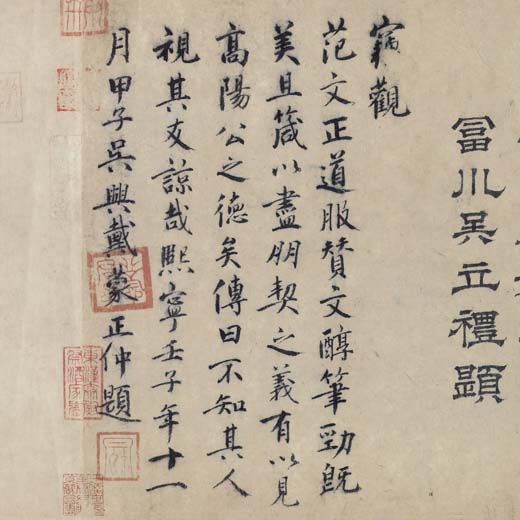 冨川吴立禮題
竊觀
范文正道服賛文醇筆勁既
美且箴以盡朋契之義有以見
髙陽公之德矣傳曰不知其人
視其友諒哉熙寧壬子年十一
月甲子吳興戴蒙正仲題